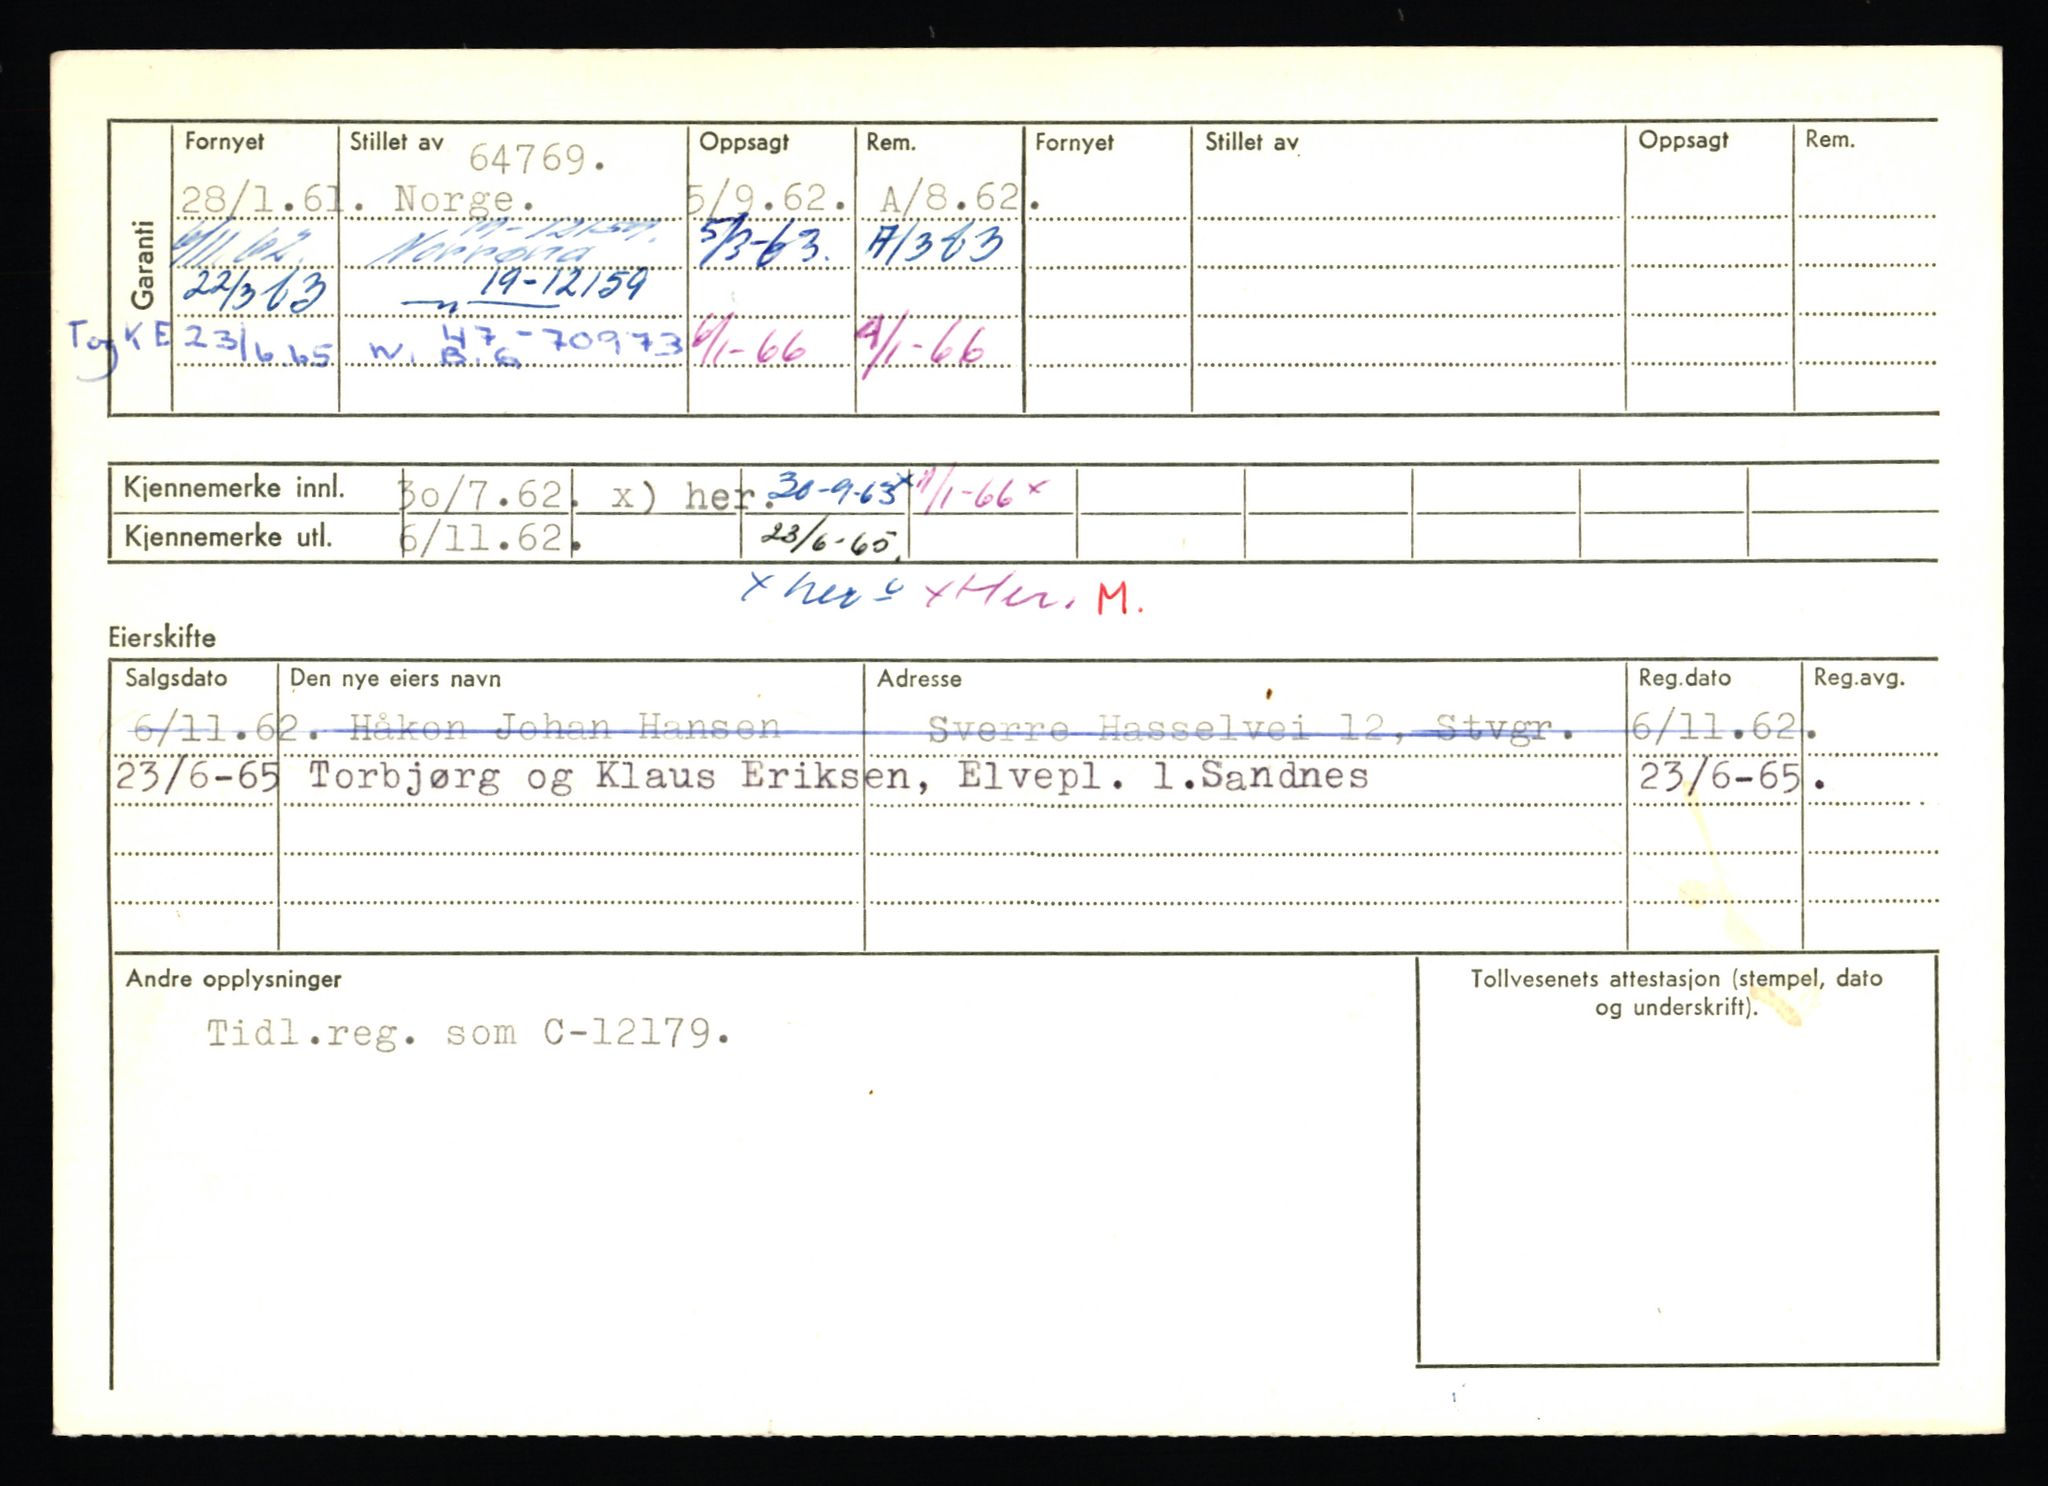 Garanti
Fornyet Stillet av Oppsagt Rem. Fornyet Stillet av Oppsagt Rem.
64769.
28/1.61. Norge. 5/9.62. A/8.62.
6/11.62. 19-12159. 5/3-63. A/3 63
Norrøna
22/3 63 19-12159
T og K E 23/6.65 47-70973 6/1-66 A/1-66
N. B. G
Kjennemerke innl. 30/7.62. x) her. 30-9-63 x 4/1-66 x
Kjennemerke utl. 6/11.62. 23/6-65.
x her x Her. M.
Eierskifte
Salgsdato Den nye eiers navn Adresse Reg.dato Reg.avg.
6/11.62. Håkon Johan Hansen Sverre Hasselvei 12, Stvgr. 6/11.62.
23/6-65 Torbjørg og Klaus Eriksen, Elvepl. 1.Sandnes 23/6-65.
Andre opplysninger
Tollvesenets attestasjon (stempel, dato
og underskrift).
Tidl.reg. som C-12179.